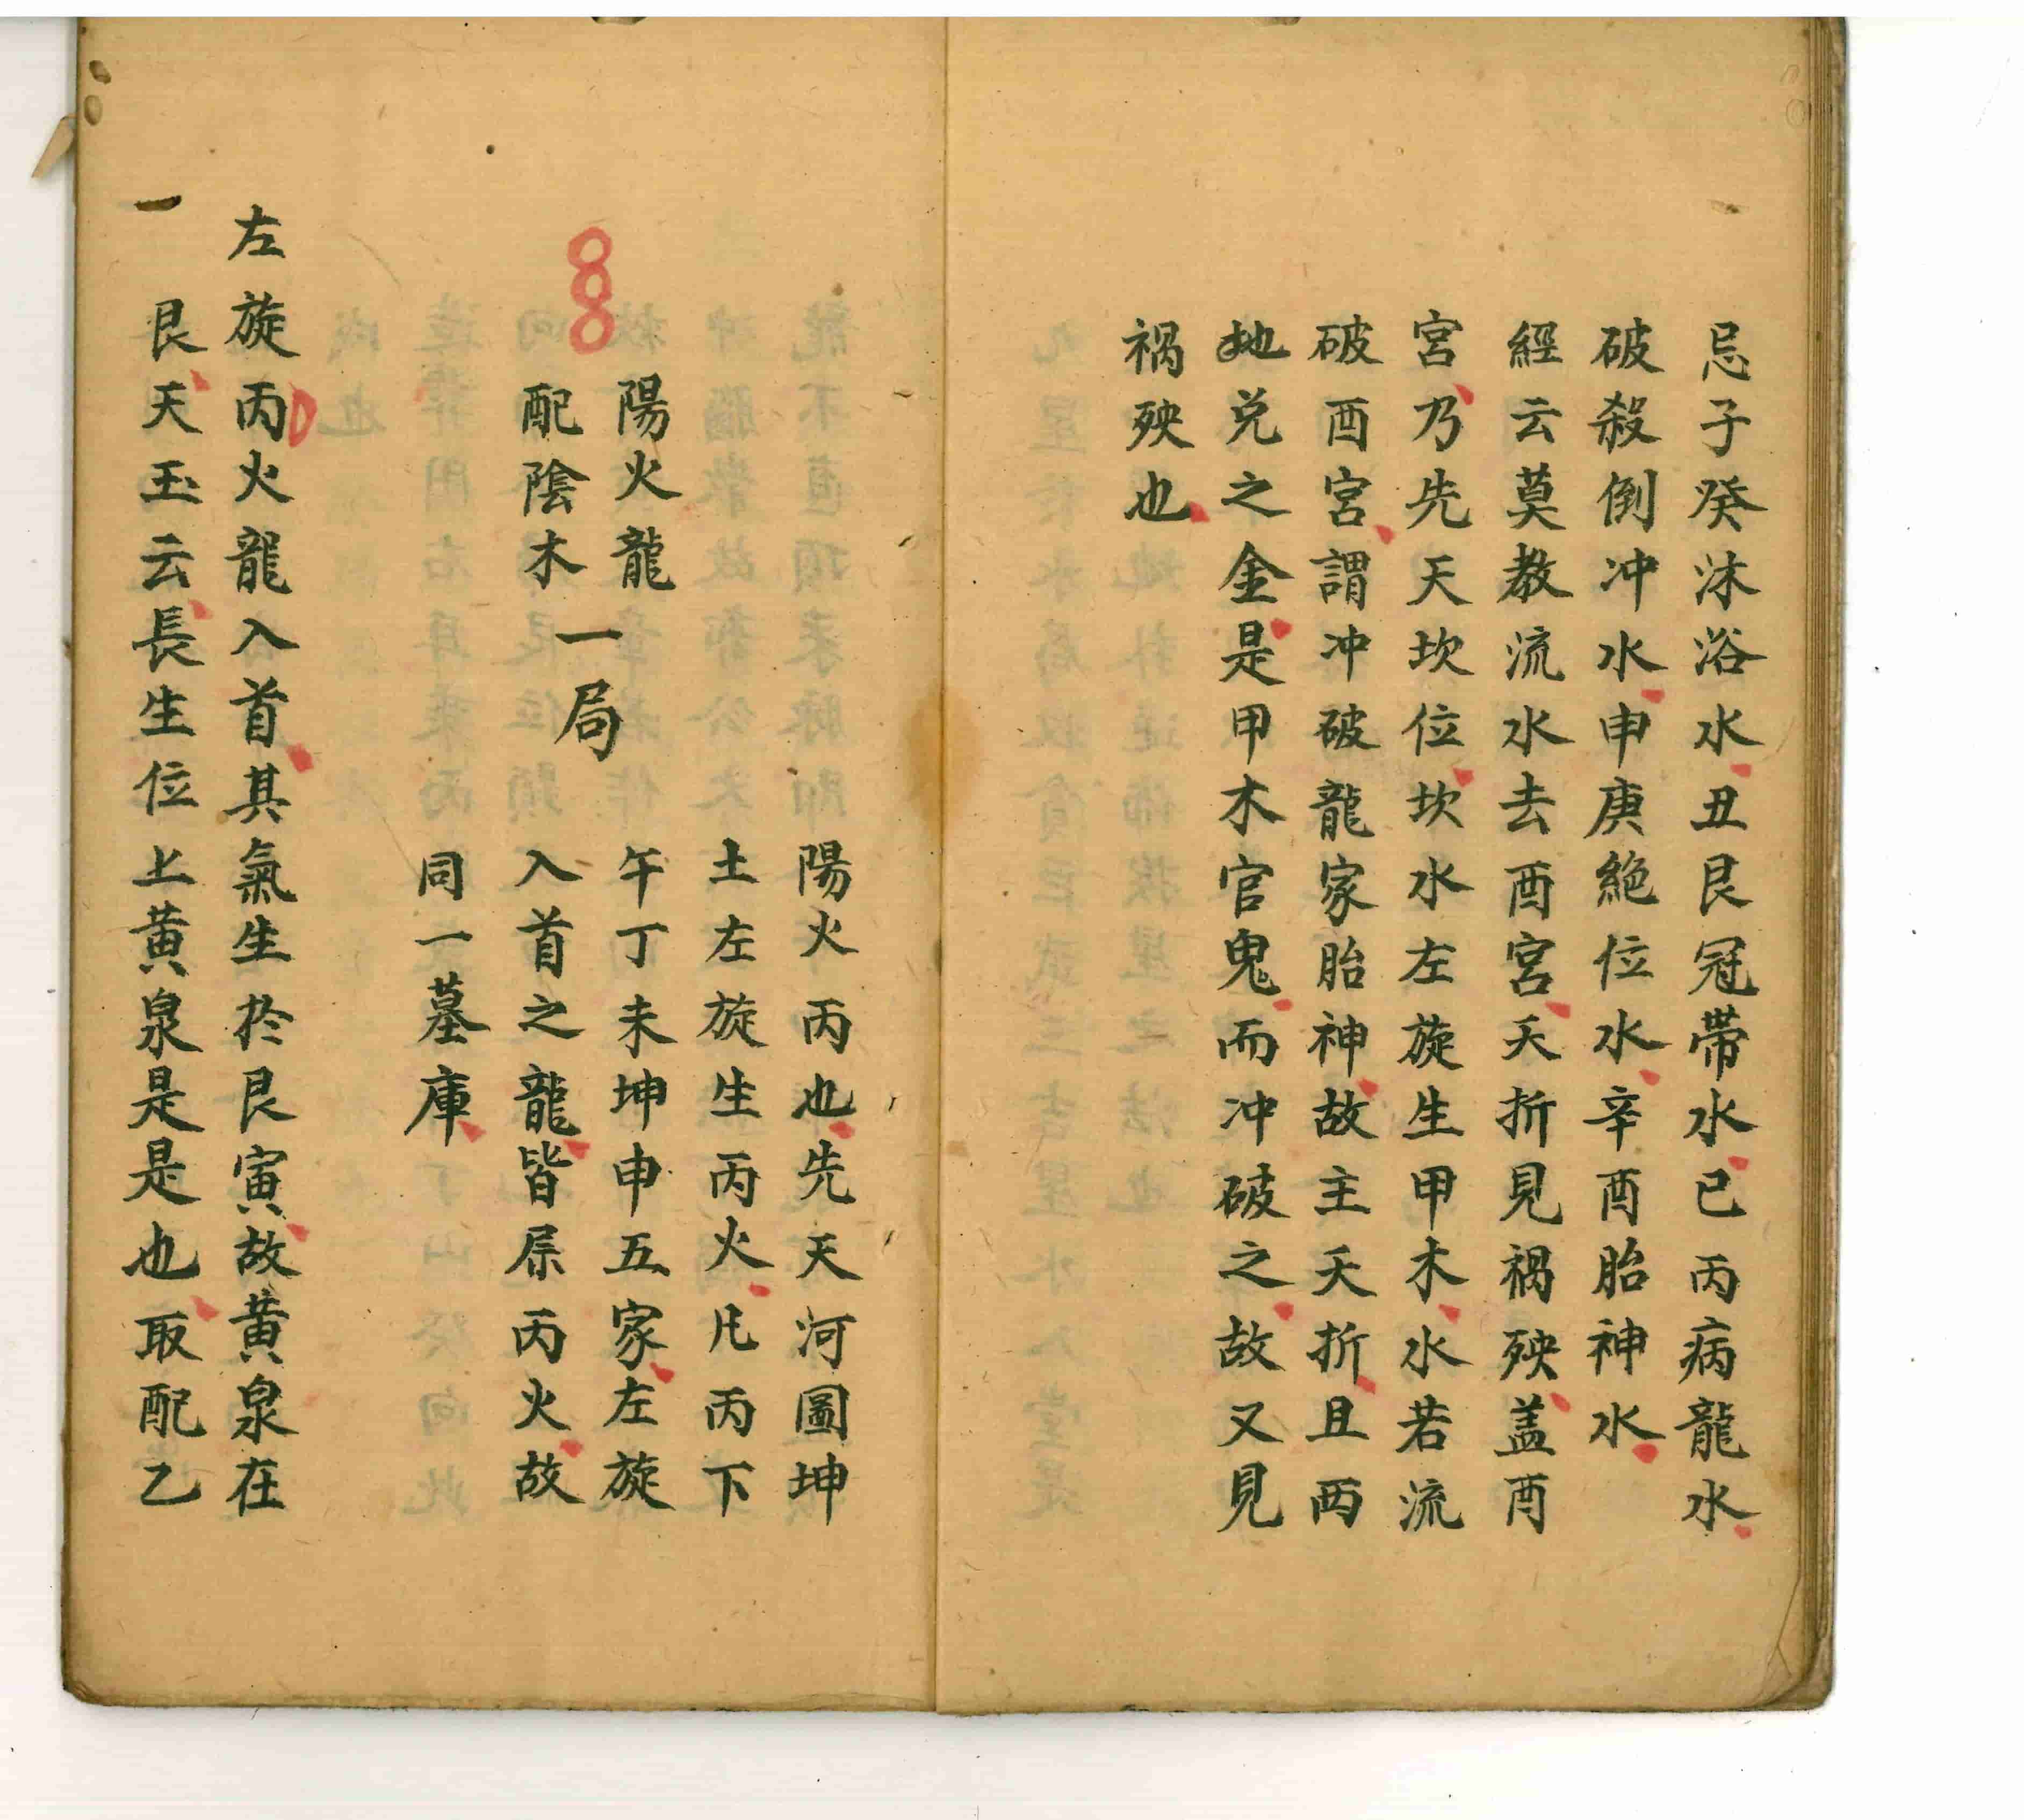 忌子癸沐浴水丑艮冠帶水已丙病龍水
破殺倒冲水申庚絕位水辛酉胎神水
經云莫教流水去酉宮夭折見禍殃盖酉
宮乃先天坎位坎水左旋生甲木水若流
破酉宮謂冲破龍家胎神故主夭折且酉
地兌之金是甲木官鬼而冲破之故又見
禍殃也
陽火丙也先天河圖坤
土左旋生丙火凡丙下
陽火龍
配陰木
一局
午丁未坤申五家左旋
入首之龍皆屬丙火故
同一墓庫
左旋丙火龍入首其氣生於艮寅故黃泉在
艮天玉云長生位上黃泉是是也取配乙
一